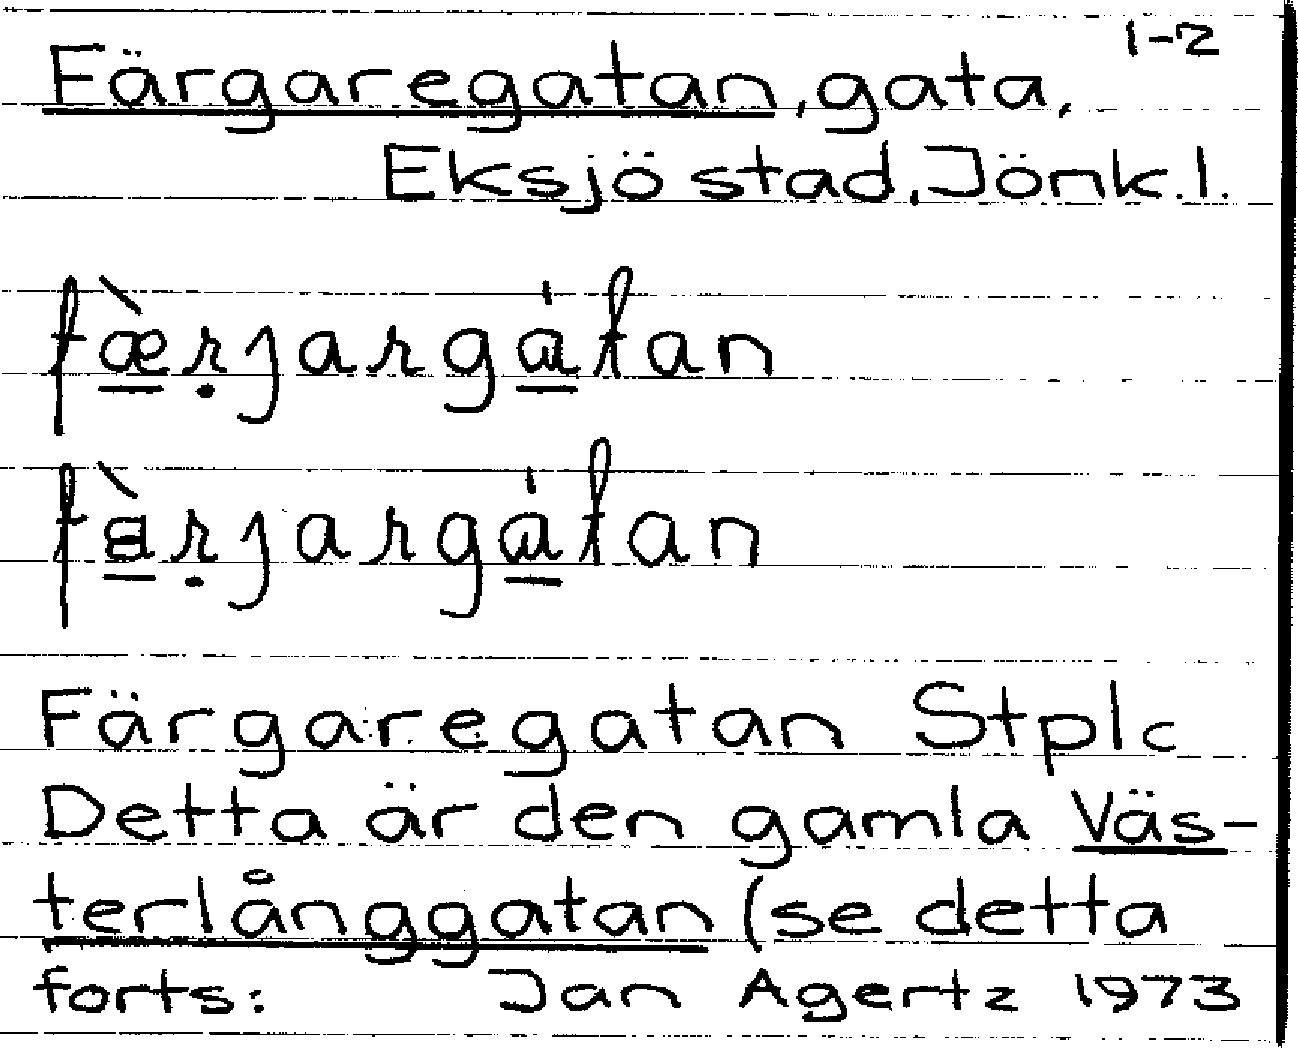 1-2
Färgaregatan, gata,
Eksjö stad, Jönk.l.
fæ̀rjargátan
fàrjargátan
Färgaregatan Stplc
Detta är den gamla Väs-
terlånggatan (se detta
forts: Jan Agertz 1973